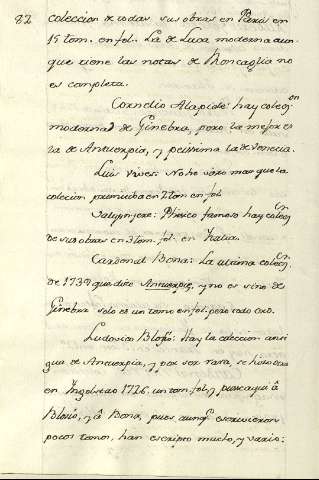 82
coleccion de todas sus obras en Paris en
15 tom. en fol. La de Luca moderna aun-
que tiene las notas de Roncaglia no
es completa.
Cornelio Alapide: hay colecc.on
moderna de Ginebra, pero la mejor es
la de Antuerpia, y pesima la de Venecia.
Luis Vives: No he visto mas que la
colecion en 2 tom. en fol.
Phisico famoso hay colec.on
de sus obras en 3 tom. fol. en Italia.
Cardenal Bona: La ultima colec.on
de 1739 que dice Antuerpie, y no es sino de
Ginebra solo es un tomo en fol. pero todo oro.
Ludovico Blosio: Hay la coleccion anti
gua de Antuerpia, y por ser rara, se hizo otra
en Ingolstad 1726. un tom. fol. y puse aqui â
Blosio, y â Bona, pues aunq.e escrivieron
pocos tomos, han escripto mucho, y vario: